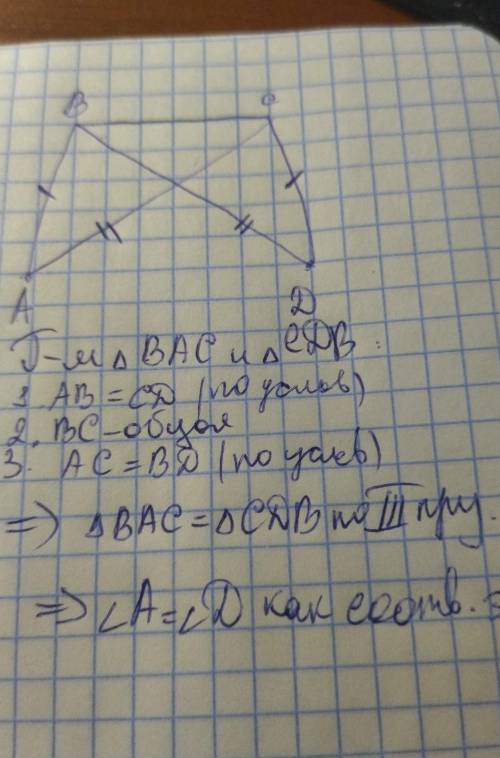 B C
A D
Р-м △ BAC и △CDB :
1. AB = CD (по услов)
2. BC - общая
3. AC = BD (по услов)
=> △BAC = △CDB по III приз.
=> ∠A = ∠D как соотв. э